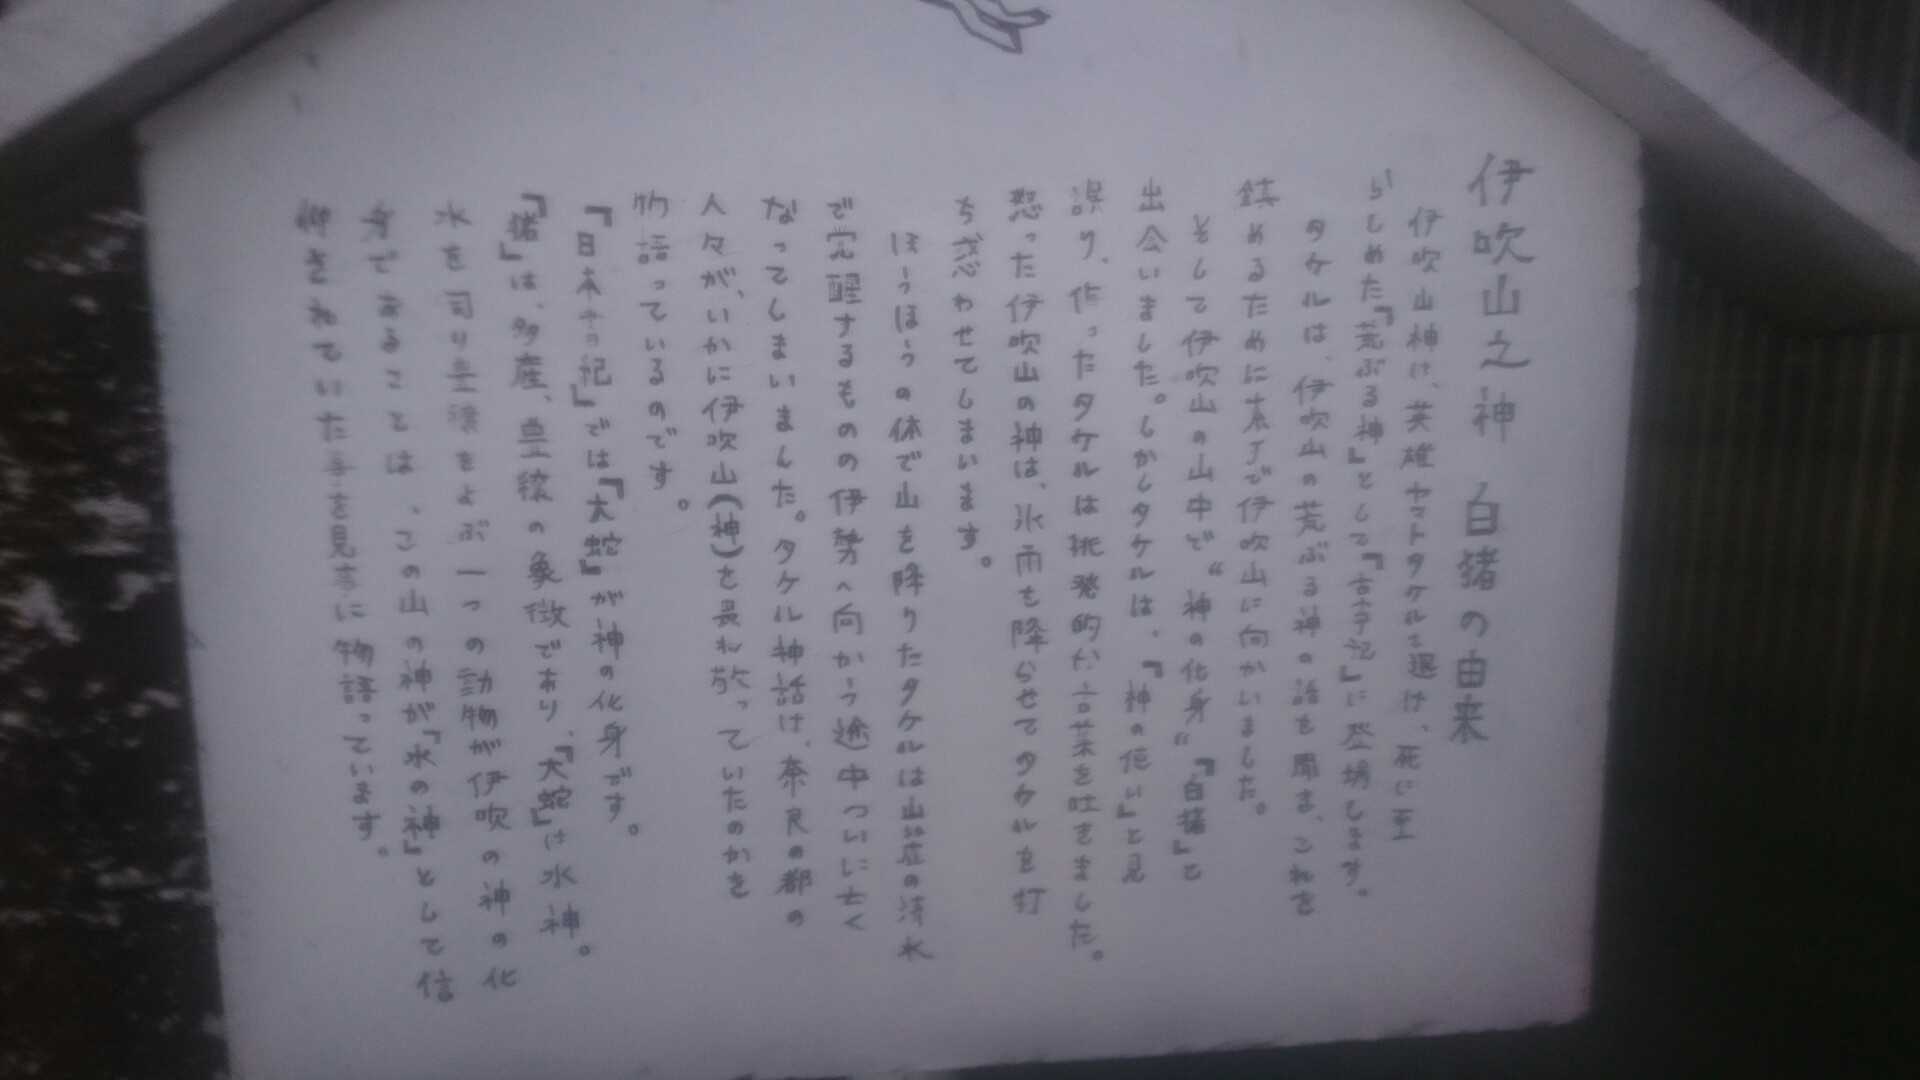 伊吹山之神 白猪の由来
伊吹山神は、英雄ヤマトタケルを退け、死に至
らしめた『荒ぶる神』として『古事記』に登場します。
タケルは、伊吹山の荒ぶる神の話を聞き、これを
鎮めるために素手で伊吹山に向かいました。
そして伊吹山の山中で“神の化身”『白猪』と
出会いました。しかしタケルは、『神の使い』と見
誤り、侮ったタケルは挑発的な言葉を吐きました。
怒った伊吹山の神は、氷雨を降らせてタケルを打
ち惑わせてしまいます。
ほうほうの体で山を降りたタケルは山麓の清水
で覚醒するものの伊勢へ向かう途中ついに亡く
なってしまいました。タケル神話は、奈良の都の
人々が、いかに伊吹山(神)を畏れ敬っていたのかを
物語っているのです。
『日本書紀』では『大蛇』が神の化身です。
『猪』は、多産、豊穣の象徴であり、『大蛇』は水神。
水を司り豊穣をよぶ一つの動物が伊吹の神の化
身であることは、この山の神が『水の神』として信
仰されていた事を見事に物語っています。